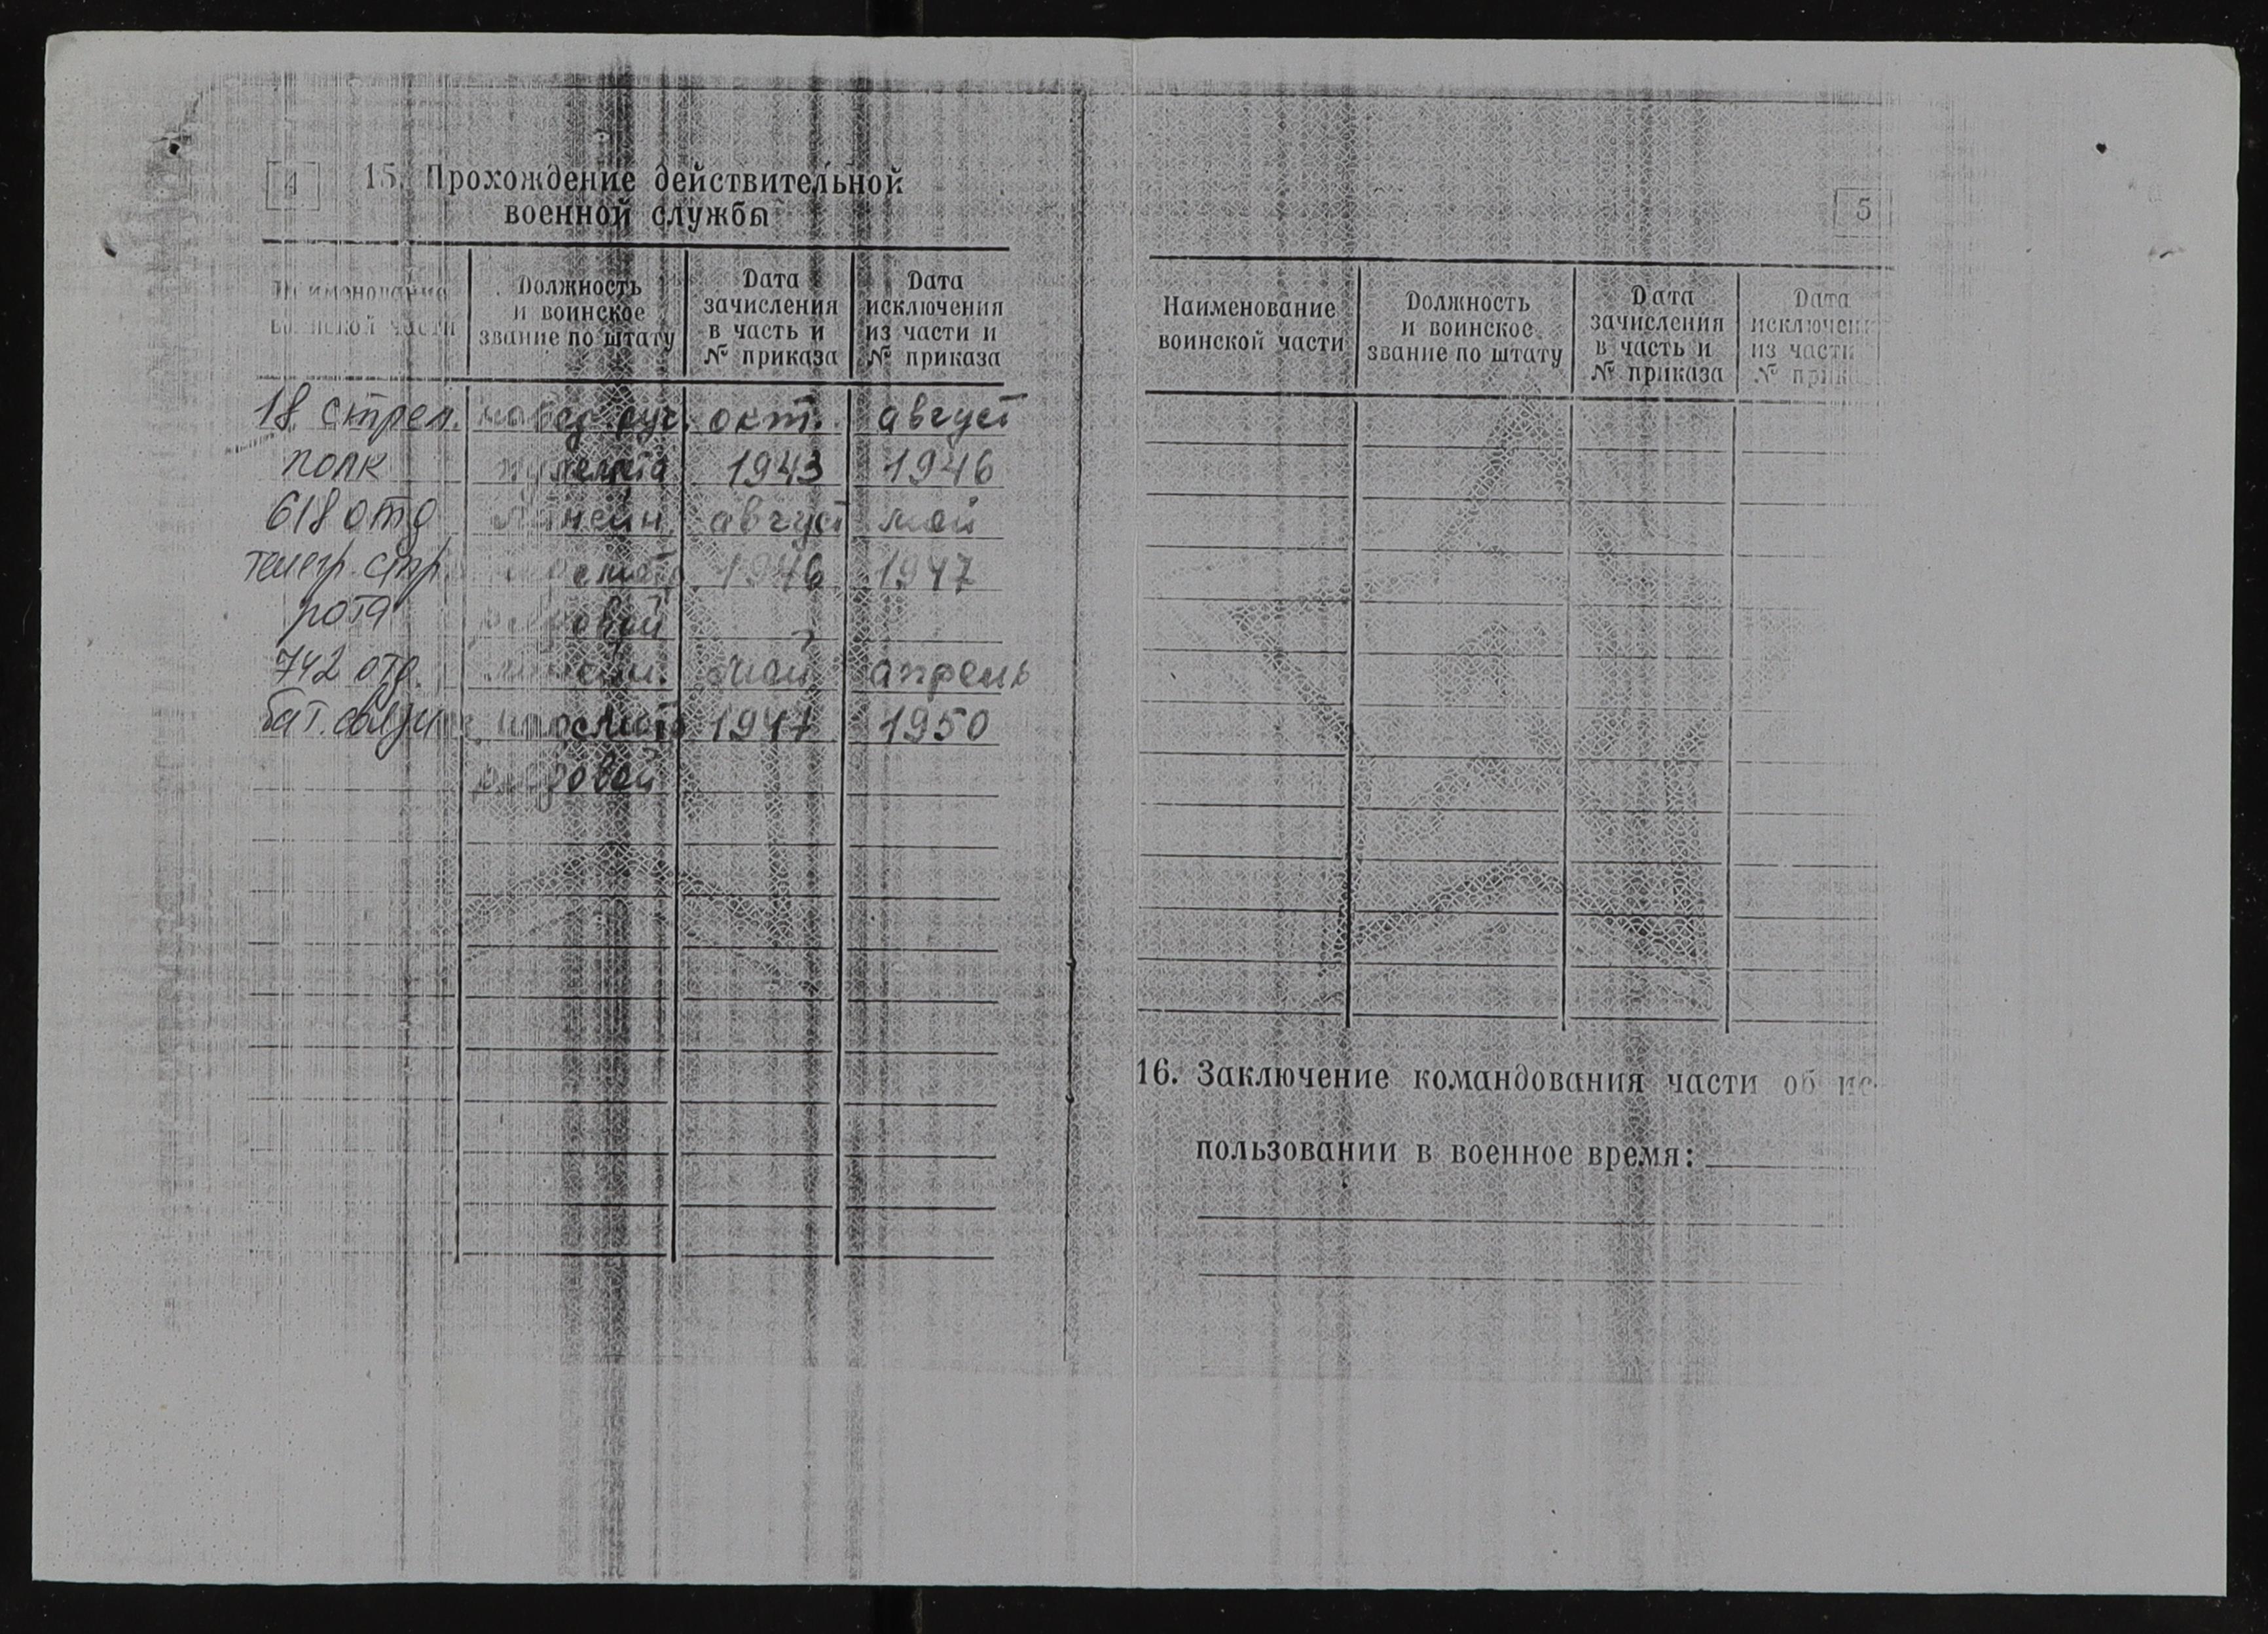 4
15. Прохождение действительной
военной службы
Наименование
воинской части
Должность
и воинское
звание по штату
Дата
зачисления
в часть и
№ приказа
Дата
исключения
из части и
№ приказа
18 стрел. навод. руч. окт. август
полк пулемета 1943 1946
618 отд линейн август май
телегр. стр. 1946 1947
рота рядовой
742 отд. линейн. май апрель
бат. связи 1947 1950
рядовой
5
Наименование
воинской части
Должность
и воинское
звание по штату
Дата
зачисления
в часть и
№ приказа
Дата
исключен
из части
№ прика
16. Заключение командования части об ис-
пользовании в военное время: